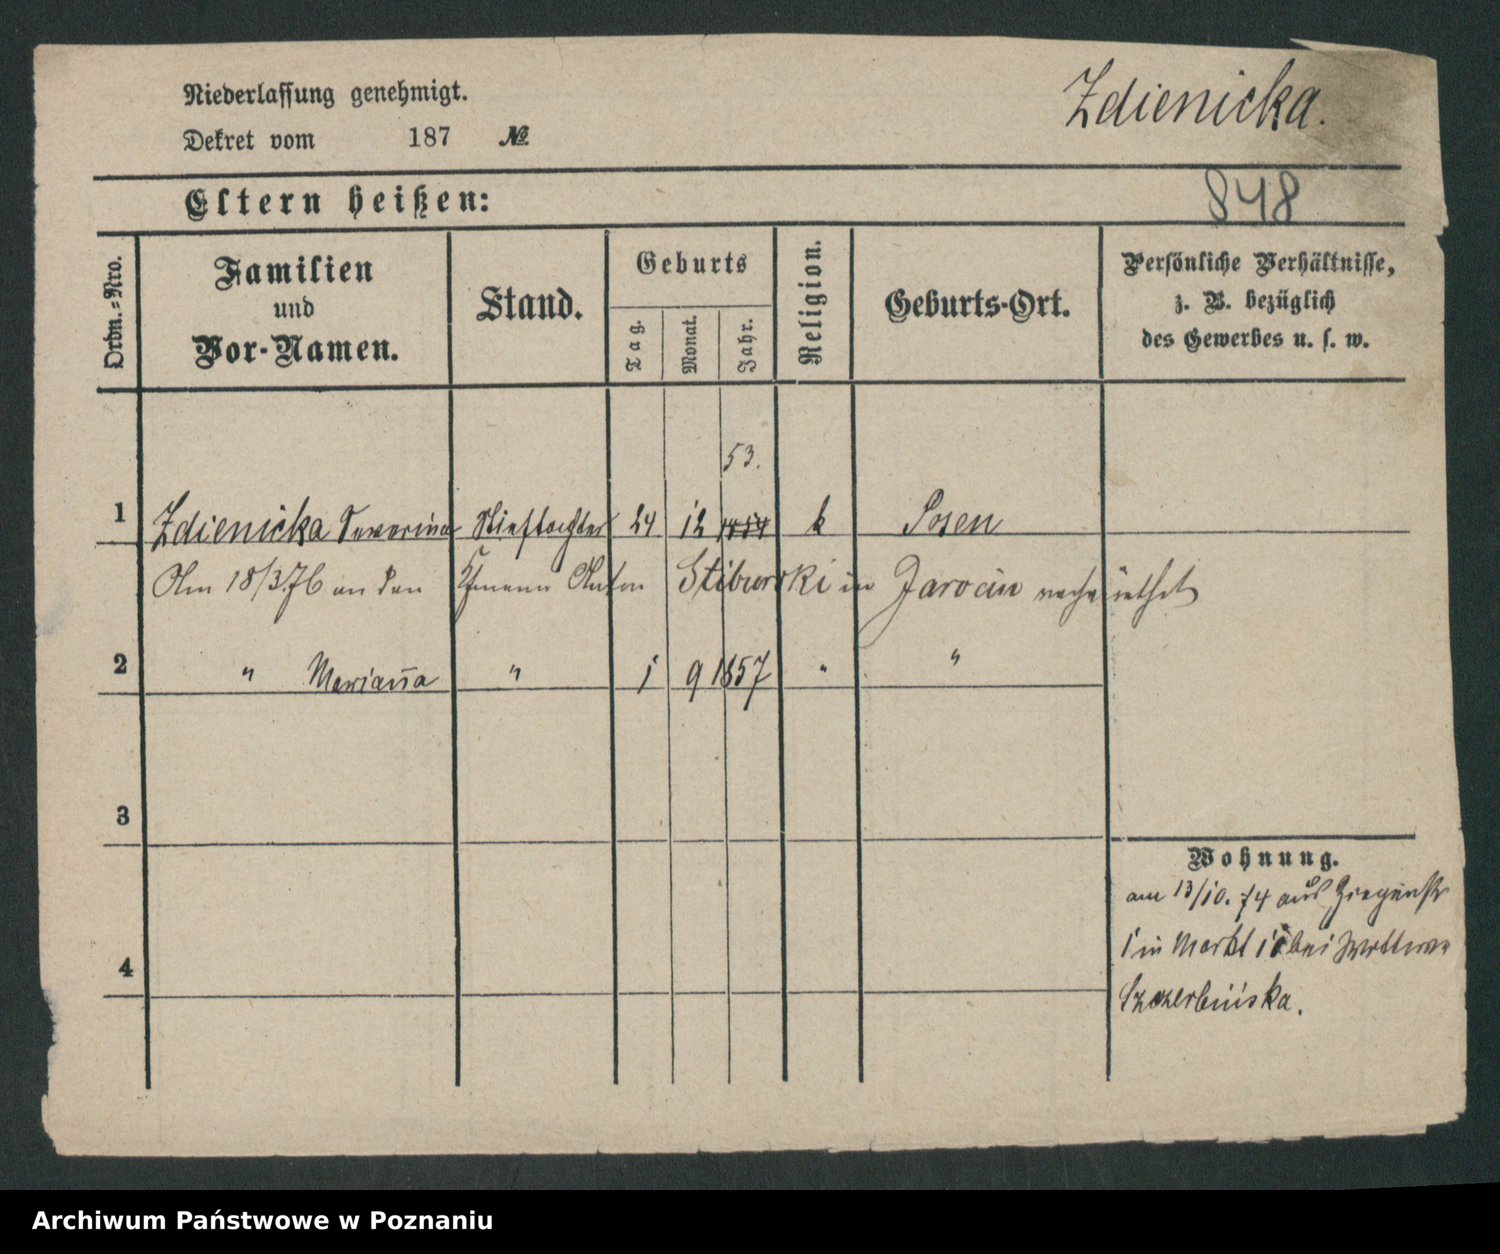 Niederlassung genehmigt.
Zdienicka.
Dekret vom 187 No
Eltern heißen:
848
Ordn.-Nro.
Familien
und
Vor-Namen.
Stand.
Geburts
Tag.
Monat.
Jahr.
Religion.
Geburts-Ort.
Persönliche Verhältnisse,
z. B. bezüglich
des Gewerbes u. s. w.
53.
1 Zdienicka Severina Stieftochter 24 12 1854 k Posen
Am 18/3.76 an den Ehmann Anton Stiburski in Jarocin verheirathet
2 " Marianna " 1 9 1857 " "
3
Wohnung.
am 13/10. 74 aus
1 in Markt bei Wittwe
4
Szczerbinska.
Archiwum Państwowe w Poznaniu